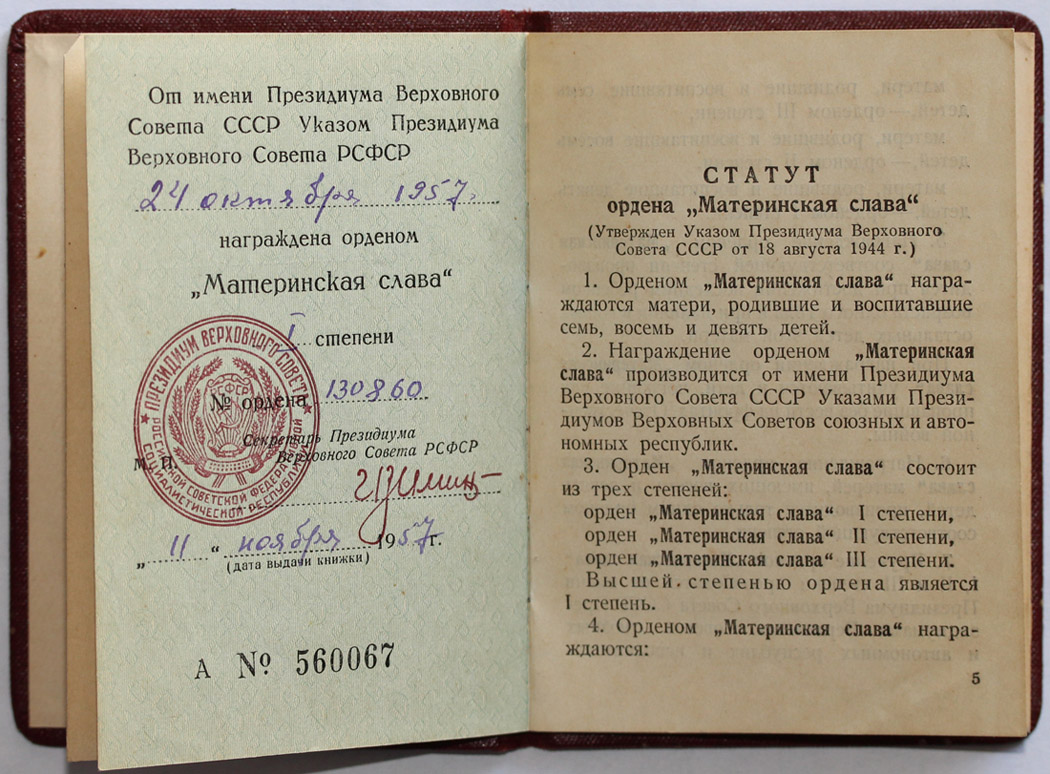 От имени Президиума Верховного
Совета СССР Указом Президиума
Верховного Совета РСФСР
24 октября 1957г.
награждена орденом
„Материнская слава“
I степени
№ ордена 130860
Секретарь Президиума
Верховного Совета РСФСР
М. П.
„ 11 “ ноября 1957 г.
(дата выдачи книжки)
А № 560067
ПРЕЗИДИУМ ВЕРХОВНОГО СОВЕТА
РОССИЙСКОЙ СОВЕТСКОЙ ФЕДЕРАТИВНОЙ
СОЦИАЛИСТИЧЕСКОЙ РЕСПУБЛИКИ
СТАТУТ
ордена „Материнская слава“
(Утвержден Указом Президиума Верховного
Совета СССР от 18 августа 1944 г.)
1. Орденом „Материнская слава“ награ-
ждаются матери, родившие и воспитавшие
семь, восемь и девять детей.
2. Награждение орденом „Материнская
слава“ производится от имени Президиума
Верховного Совета СССР Указами Прези-
диумов Верховных Советов союзных и авто-
номных республик.
3. Орден „Материнская слава“ состоит
из трех степеней:
орден „Материнская слава“ I степени,
орден „Материнская слава“ II степени,
орден „Материнская слава“ III степени.
Высшей степенью ордена является
I степень.
4. Орденом „Материнская слава“ награ-
ждаются:
5